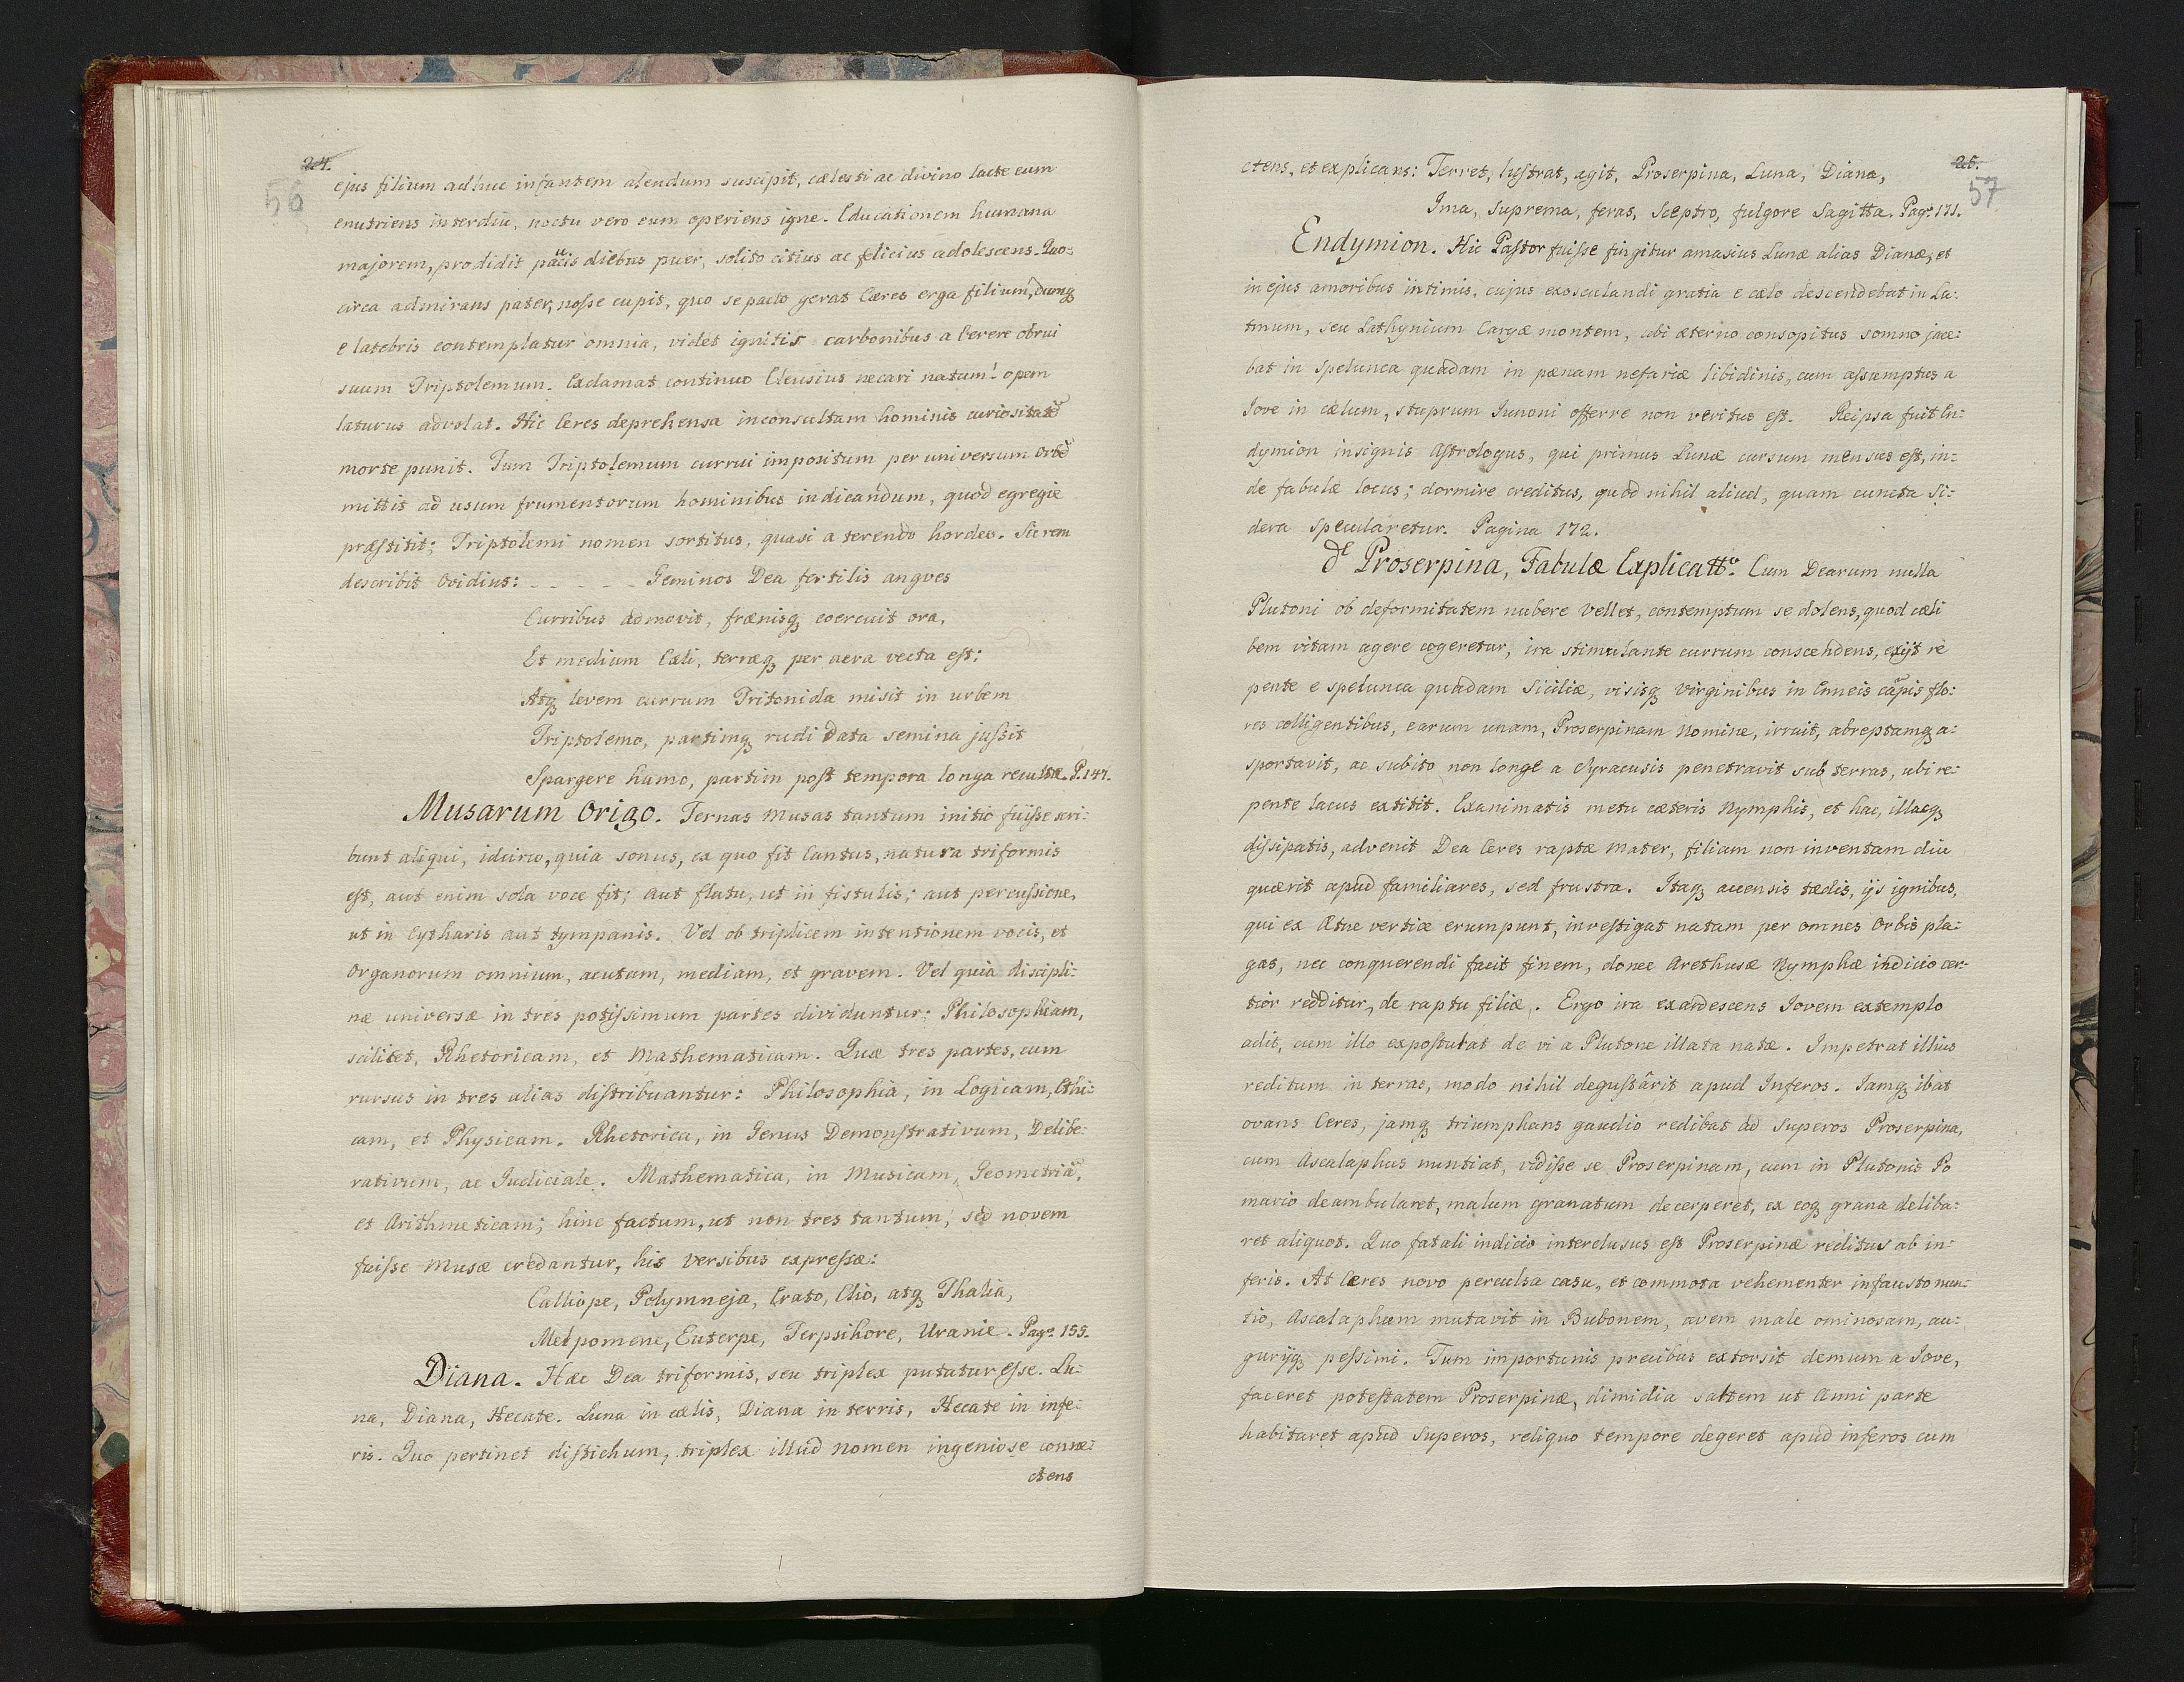 24.
56
ejus filium adhuc infantem alendum suscipit, cælesti ac divino lacte eum
enutriens interdiu, noctu vero eum operiens igne. Educationem humana
majorem, prodidit paucis diebus puer, solito citius ac felicius adolescens. Quo:
circa admirans pater, nosse cupit, quo se pacto gerat Cæres erga filium, dumq₃
e latebris contemplatur omnia, videt ignitis carbonibus a Cerere obrui
suum Triptolemum. Exclamat continuo Eleusius necari natum! opem
laturus advolat. Hic Ceres deprehensa inconsultam hominis curiositatē
morte punit. Tum Triptolemum currui impositum per universum Orbē
mittit ad usum frumentorum hominibus indicandum, quod egregie
præstitit; Triptolemi nomen sortitus, quasi a terendo hordeo. Sic rem
describit Ovidius: - - - - - Geminos Dea fertilis angves
Curribus admovit, frænisq₃ coercuit ora,
Et medium Cæli, terræq₃ per aera vecta est:
Atq₃ levem currum Tritonida misit in urbem
Triptolemo, partimq₃ rudi data semina jussit
Spargere humo, partim post tempora longa recultæ. P. 147.
Musarum Origo. Ternas Musas tantum initio fuisse scri:
bunt aliqui, idcirco, quia sonus, ex quo fit Cantus, natura triformis
est, aut enim sola voce fit; aut flatu, ut in fistulis; aut percussione,
ut in Cytharis aut tympanis. Vel ob triplicem intentionem vocis, et
Organorum omnium, acutam, mediam, et gravem. Vel quia discipli:
næ universæ in tres potissimum partes dividuntur; Philosophiam,
scilicet, Rhetoricam, et Mathematicam. Quæ tres partes, cum
rursus in tres alias distribuantur: Philosophia, in Logicam, Ethi:
cam, et Physicam. Rhetorica, in Genus Demonstrativum, Delibe:
rativum, ac Judiciale. Mathematica, in Musicam, Geometriā,
et Arithmeticam; hinc factum, ut non tres tantum, sed novem
fuisse Musæ credantur, his versibus expressæ:
Calliope, Polymneja, Erato, Clio, atq₃ Thalia,
Melpomene, Euterpe, Terpsihore, Uranie. Pag. 155.
Diana. Hæc Dea triformis, seu triplex putatur esse. Lu:
na, Diana, Hecate. Luna in cælis, Diana in terris, Hecate in infe:
ris. Quo pertinet distichum, triplex illud nomen ingeniose conne:
ctens
25.
57
ctens, et explicans: Terret, lustrat, agit, Proserpina, Luna, Diana,
Ima, suprema, feras, Sceptro, fulgore Sagitta. Pag. 171.
Endymion. Hic Pastor fuisse fingitur amasius Lunæ alias Dianæ, et
in ejus amoribus intimis, cujus exosculandi gratia e cælo descendebat in La:
tmum, seu Lathynium Caryæ montem, ubi æterno consopitus somno jace:
bat in Spelunca quadam in pænam nefariæ libidinis, cum assumptus a
Jove in cælum, stuprum Junoni offerre non veritus est. Reipsa fuit En:
dymion insignis Astrologus, qui primus Lunæ cursum mensus est, in:
de fabulæ locus; dormire creditus, quod nihil aliud, quam cuncta Si:
dera specularetur. Pagina 172.
de Proserpina, Fabulæ Explicatt⁰. Cum Dearum nulla
Plutoni ob deformitatem nubere vellet, contemptum se dolens, quod cæli
bem vitam agere cogeretur, ira stimulante currum conscendens, exijt re
pente e spelunca quadam Siciliæ, visisq₃ virginibus in Enneis cāpis flo:
res colligentibus, earum unam, Proserpinam Nomine, irruit, abreptamq₃ a:
sportavit, ac subito non longe a Syracusis penetravit sub terras, ubi re:
pente lacus extitit. Exanimatis metu cæteris Nymphis, et hac, illacq₃
dissipatis, advenit Dea Ceres raptæ mater, filiam non inventam diu
quærit apud familiares, sed frustra. Itaq₃ accensis tædis, ijs ignibus,
qui ex Ætnæ vertice erumpunt, investigat natam per omnes Orbis pla:
gas, nec conquerendi facit finem, donec Arethusæ Nymphæ indicio cer:
tior redditur, de raptu filiæ. Ergo ira exardescens Jovem extemplo
adit, cum illo expostulat de vi a Plutone illata natæ. Impetrat illius
reditum in terras, modo nihil degustârit apud Inferos. Jamq₃ ibat
ovans Ceres, jamq₃ triumphans gaudio redibat ad Superos Proserpina,
cum Ascalaphus nuntiat, vidisse se Proserpinam, cum in Plutonis Po
mario deambularet, malum granatum decerperet, ex eoq₃ grana deliba:
ret aliquot. Quo fatali indicio interclusus est Proserpinæ reditus ab in:
feris. At Ceres novo perculsa casu, et commota vehementer infausto nun:
tio, Ascalaphum mutavit in Bubonem, avem male ominosam, au:
gurijq₃ pessimi. Tum importunis precibus extorsit demum a Jove,
faceret potestatem Proserpinæ, dimidia saltem ut Anni parte
habitaret apud Superos, reliquo tempore degeret apud inferos cum